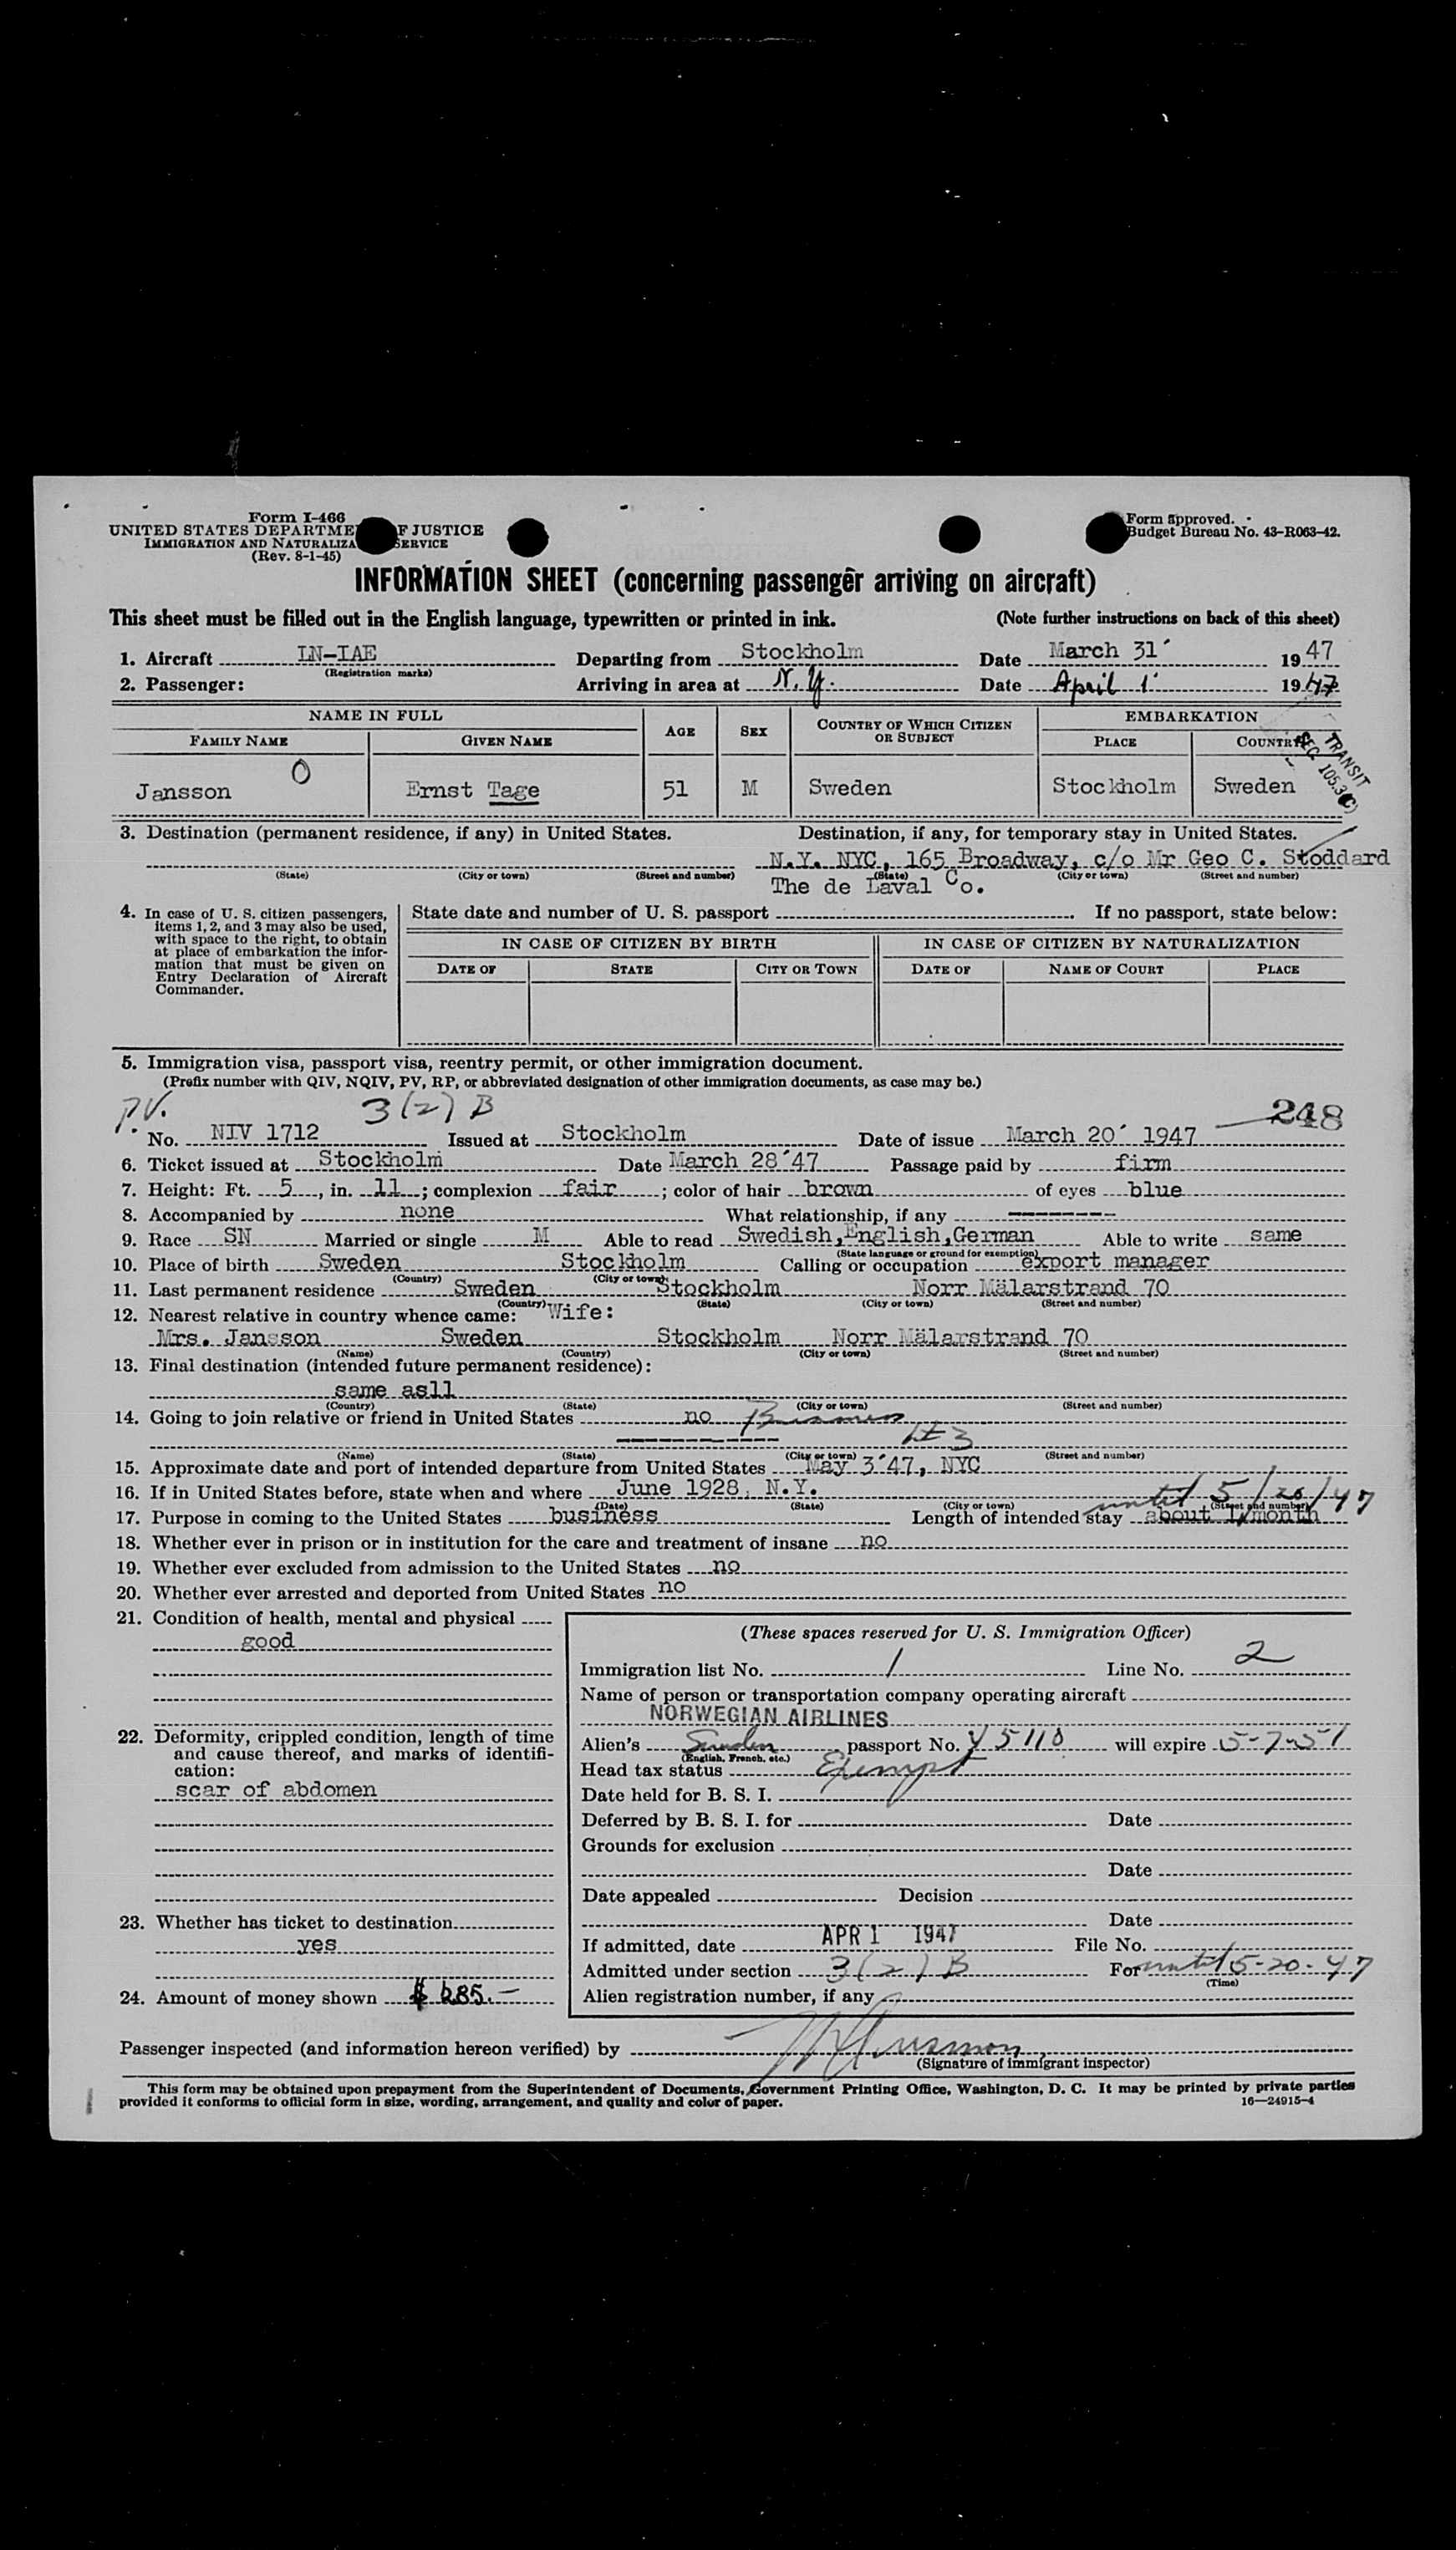 Form I-466
UNITED STATES DEPARTME F JUSTICE
IMMIGRATION AND NATURALIZA SERVICE
(Rev. 8-1-45)
Form approved.
Budget Bureau No. 43-R063-42.
INFORMATION SHEET (concerning passenger arriving on aircraft)
This sheet must be filled out in the English language, typewritten or printed in ink. (Note further instructions on back of this sheet)
1. Aircraft LN-IAE Departing from Stockholm Date March 31 1947
(Registration marks)
2. Passenger: Arriving in area at N.Y. Date April 1 1947
NAME IN FULL AGE SEX COUNTRY OF WHICH CITIZEN OR SUBJECT EMBARKATION
FAMILY NAME GIVEN NAME PLACE COUNTRY
TRANSIT
SEC. 105.3(C)
O
Jansson Ernst Tage 51 M Sweden Stockholm Sweden
3. Destination (permanent residence, if any) in United States. Destination, if any, for temporary stay in United States.
N.Y. NYC, 165 Broadway, c/o Mr Geo C. Stoddard
(State) (City or town) (Street and number) (State) (City or town) (Street and number)
The de Laval Co.
4. In case of U. S. citizen passengers, items 1, 2, and 3 may also be used, with space to the right, to obtain at place of embarkation the information that must be given on Entry Declaration of Aircraft Commander.
State date and number of U. S. passport If no passport, state below:
IN CASE OF CITIZEN BY BIRTH IN CASE OF CITIZEN BY NATURALIZATION
DATE OF STATE CITY OR TOWN DATE OF NAME OF COURT PLACE
5. Immigration visa, passport visa, reentry permit, or other immigration document.
(Prefix number with QIV, NQIV, PV, RP, or abbreviated designation of other immigration documents, as case may be.)
P.V. 3(2) B 248
No. NIV 1712 Issued at Stockholm Date of issue March 20 1947
6. Ticket issued at Stockholm Date March 28'47 Passage paid by firm
7. Height: Ft. 5, in. 11; complexion fair; color of hair brown of eyes blue
8. Accompanied by none What relationship, if any --------
9. Race SN Married or single M Able to read Swedish,English,German Able to write same
(State language or ground for exemption)
10. Place of birth Sweden Stockholm Calling or occupation export manager
(Country) (City or town)
11. Last permanent residence Sweden Stockholm Norr Mälarstrand 70
(Country) (State) (City or town) (Street and number)
12. Nearest relative in country whence came: Wife:
Mrs. Jansson Sweden Stockholm Norr Mälarstrand 70
(Name) (Country) (City or town) (Street and number)
13. Final destination (intended future permanent residence):
same as11
(Country) (State) (City or town) (Street and number)
14. Going to join relative or friend in United States no Business
(Name) (State) (City or town) (Street and number)
15. Approximate date and port of intended departure from United States May 3'47, NYC
16. If in United States before, state when and where June 1928, N.Y.
(Date) (State) (City or town) (Street and number)
until 5/20/47
17. Purpose in coming to the United States business Length of intended stay about 1 month
18. Whether ever in prison or in institution for the care and treatment of insane no
19. Whether ever excluded from admission to the United States no
20. Whether ever arrested and deported from United States no
21. Condition of health, mental and physical
good
22. Deformity, crippled condition, length of time and cause thereof, and marks of identification:
scar of abdomen
23. Whether has ticket to destination
yes
24. Amount of money shown $ 285.-
(These spaces reserved for U. S. Immigration Officer)
Immigration list No. 1 Line No. 2
Name of person or transportation company operating aircraft
NORWEGIAN AIRLINES
Alien's Sweden passport No. Y 5110 will expire 5-7-51
(English, French, etc.)
Head tax status Exempt
Date held for B. S. I.
Deferred by B. S. I. for Date
Grounds for exclusion
Date
Date appealed Decision
Date
If admitted, date APR 1 1947 File No.
Admitted under section 3(2) B For until 5-20-47
(Time)
Alien registration number, if any
Passenger inspected (and information hereon verified) by
(Signature of immigrant inspector)
This form may be obtained upon prepayment from the Superintendent of Documents, Government Printing Office, Washington, D. C. It may be printed by private parties
provided it conforms to official form in size, wording, arrangement, and quality and color of paper. 16—24915-4